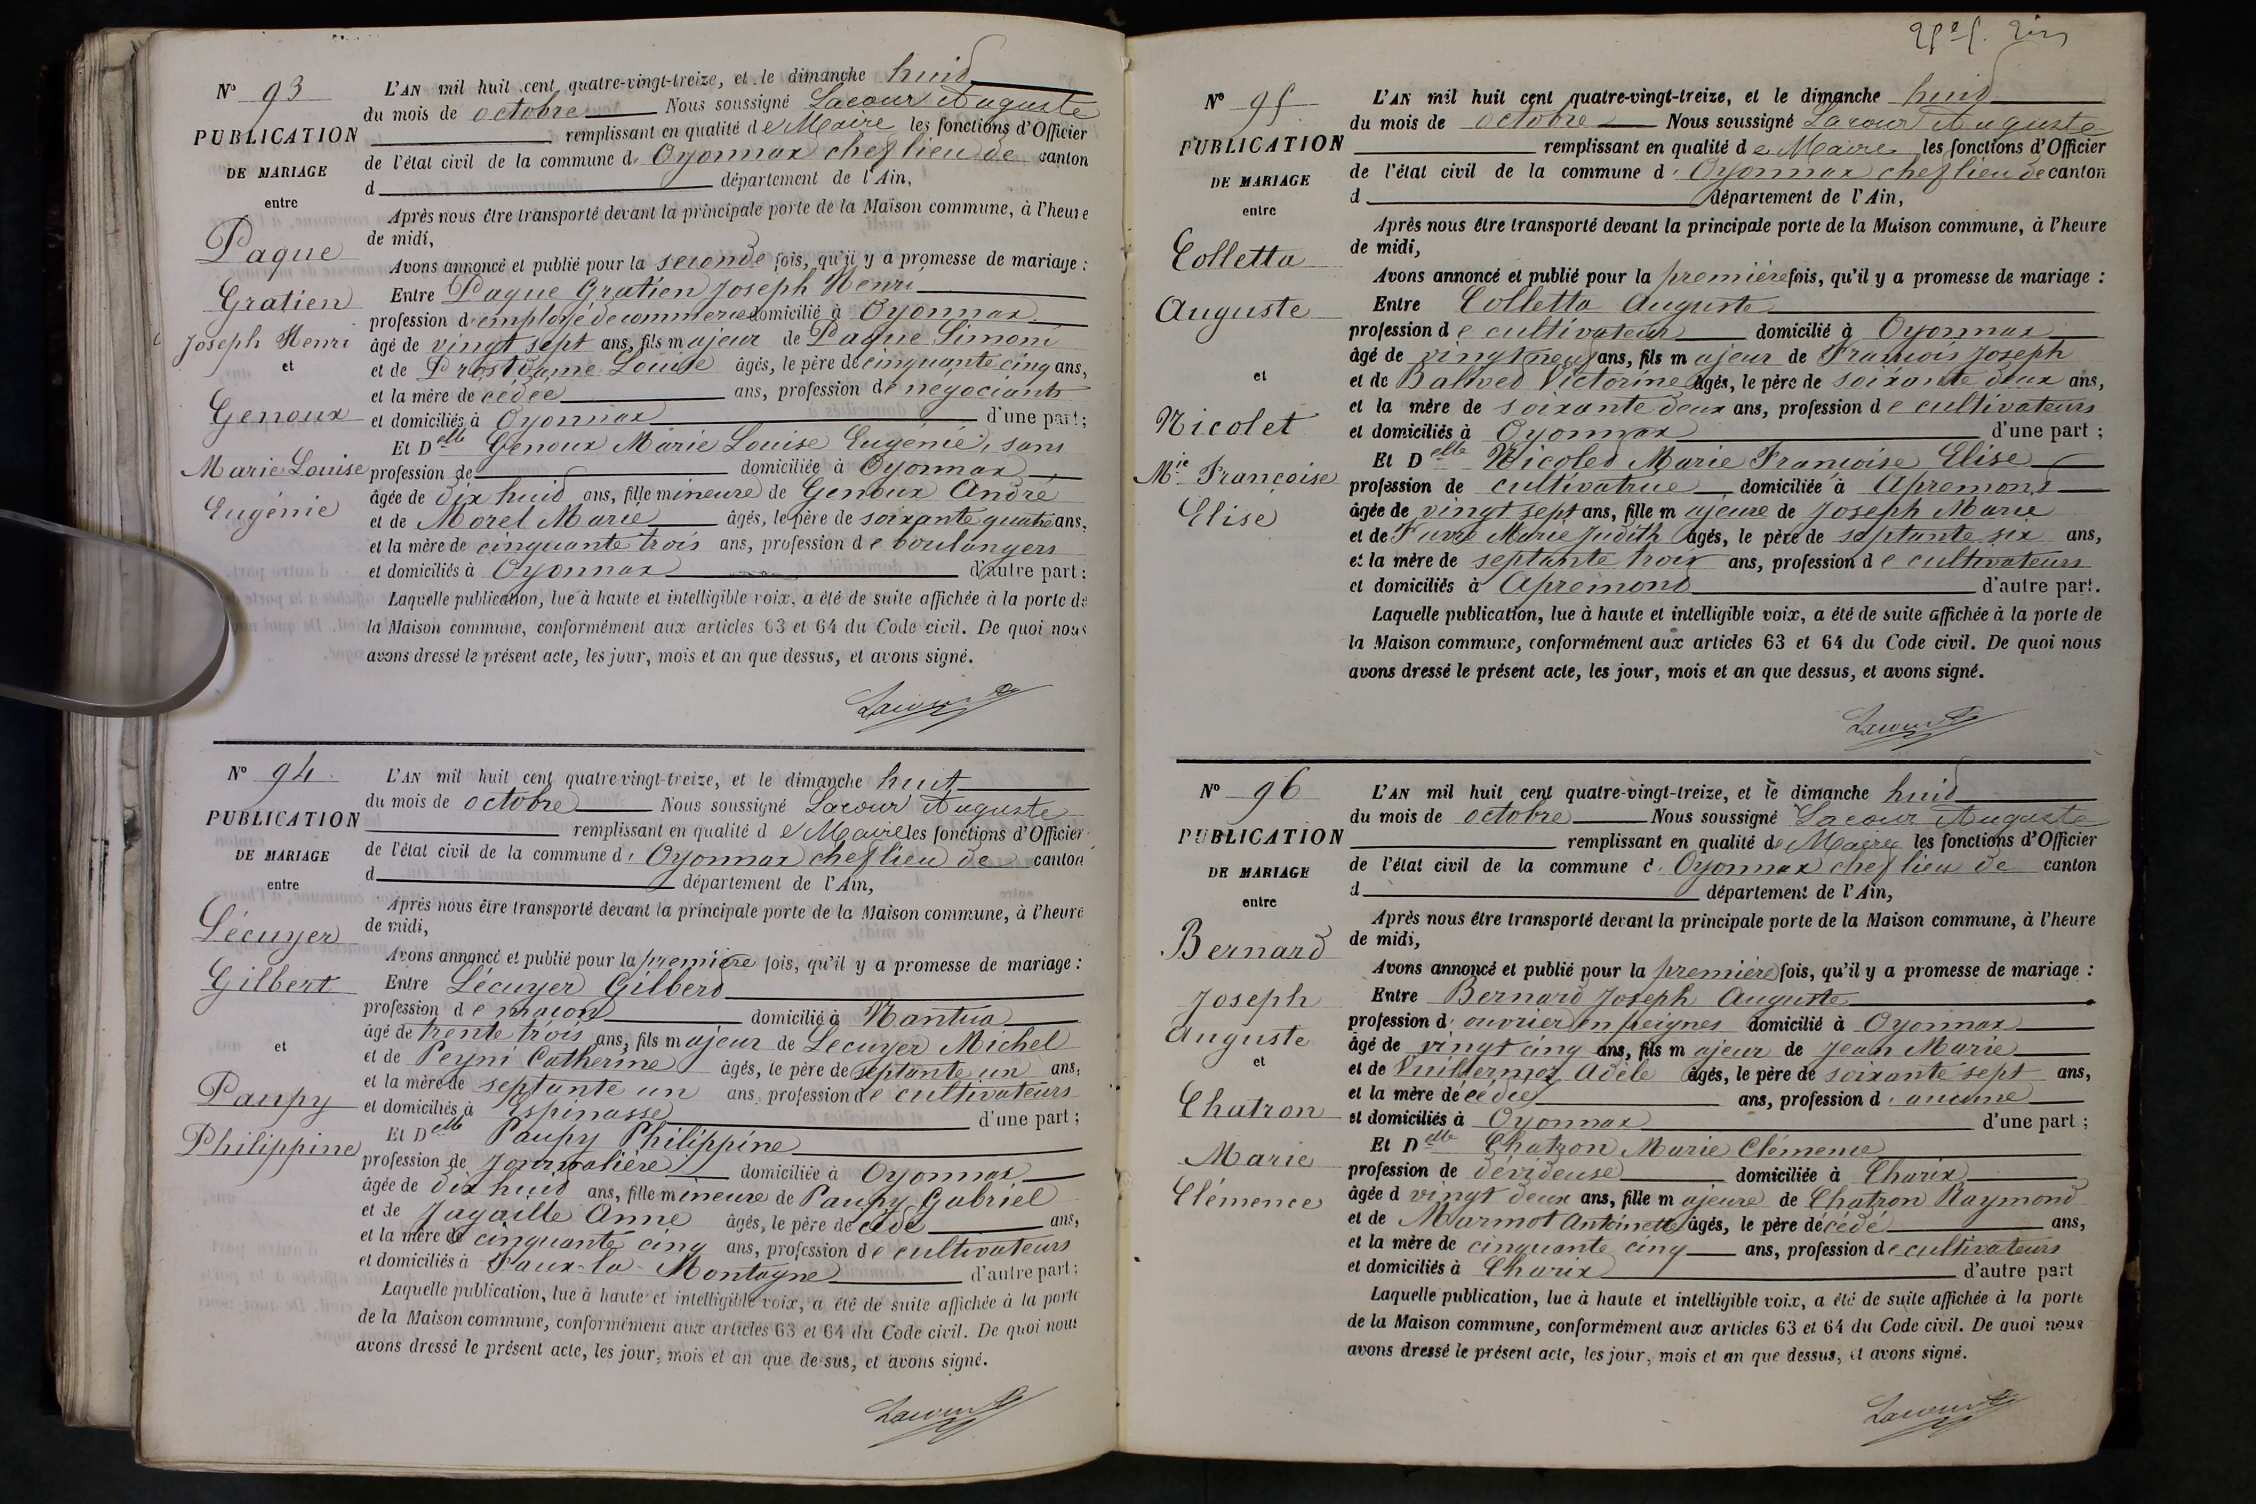 Nº 93
PUBLICATION
DE MARIAGE
entre
Paque
Gratien
Joseph Henri
et
Genoux
Marie Louise
Eugénie
L'AN mil huit cent quatre-vingt-treize, et le dimanche huit
du mois de octobre Nous soussigné Lacour Auguste
remplissant en qualité de Maire les fonctions d'Officier
de l'état civil de la commune d' Oyonnax chef lieu de canton
d département de l'Ain,
Après nous être transporté devant la principale porte de la Maison commune, à l'heure
de midi,
Avons annoncé et publié pour la seconde fois, qu'il y a promesse de mariage :
Entre Paque Gratien Joseph Henri
profession d'employé de commerce domicilié à Oyonnax
âgé de vingt sept ans, fils majeur de Paque Simon
et de Prost Louise âgés, le père de cinquante cinq ans,
et la mère décédée ans, profession de négociants
et domiciliés à Oyonnax d'une part ;
Et Delle Genoux Marie Louise Eugénie, sans
profession de domiciliée à Oyonnax
âgée de dix huit ans, fille mineure de Genoux André
et de Morel Marie âgés, le père de soixante quatre ans,
et la mère de cinquante trois ans, profession de boulangers
et domiciliés à Oyonnax d'autre part ;
Laquelle publication, lue à haute et intelligible voix, a été de suite affichée à la porte de
la Maison commune, conformément aux articles 63 et 64 du Code civil. De quoi nous
avons dressé le présent acte, les jour, mois et an que dessus, et avons signé.
Lacour A
Nº 94
PUBLICATION
DE MARIAGE
entre
Lécuyer
Gilbert
et
Paupy
Philippine
L'AN mil huit cent quatre-vingt-treize, et le dimanche huit
du mois de octobre Nous soussigné Lacour Auguste
remplissant en qualité de Maire les fonctions d'Officier
de l'état civil de la commune d' Oyonnax chef lieu de canton
d département de l'Ain,
Après nous être transporté devant la principale porte de la Maison commune, à l'heure
de midi,
Avons annoncé et publié pour la première fois, qu'il y a promesse de mariage :
Entre Lécuyer Gilbert
profession de maçon domicilié à Nantua
âgé de trente trois ans, fils majeur de Lecuyer Michel
et de Peyni Catherine âgés, le père de septante un ans,
et la mère de septante un ans, profession de cultivateurs
et domiciliés à Espinasse d'une part ;
Et Delle Paupy Philippine
profession de Journalière domiciliée à Oyonnax
âgée de dix huit ans, fille mineure de Paupy Gabriel
et de Jagaille Anne âgés, le père décédé ans,
et la mère de cinquante cinq ans, profession de cultivateurs
et domiciliés à Faux-la-Montagne d'autre part ;
Laquelle publication, lue à haute et intelligible voix, a été de suite affichée à la porte
de la Maison commune, conformément aux articles 63 et 64 du Code civil. De quoi nous
avons dressé le présent acte, les jour, mois et an que dessus, et avons signé.
Lacour A
Nº 95
PUBLICATION
DE MARIAGE
entre
Colletta
Auguste
et
Nicolet
Mie Françoise
Elise
L'AN mil huit cent quatre-vingt-treize, et le dimanche huit
du mois de octobre Nous soussigné Lacour Auguste
remplissant en qualité de Maire les fonctions d'Officier
de l'état civil de la commune d' Oyonnax chef lieu de canton
d département de l'Ain,
Après nous être transporté devant la principale porte de la Maison commune, à l'heure
de midi,
Avons annoncé et publié pour la première fois, qu'il y a promesse de mariage :
Entre Colletta Auguste
profession de cultivateur domicilié à Oyonnax
âgé de vingt neuf ans, fils majeur de François Joseph
et de Balivet Victorine âgés, le père de soixante deux ans,
et la mère de soixante deux ans, profession de cultivateurs
et domiciliés à Oyonnax d'une part ;
Et Delle Nicolet Marie Françoise Elise
profession de cultivatrice domiciliée à Apremont
âgée de vingt sept ans, fille majeure de Joseph Marie
et de Fuvre Marie Judith âgés, le père de septante six ans,
et la mère de septante trois ans, profession de cultivateurs
et domiciliés à Apremont d'autre part.
Laquelle publication, lue à haute et intelligible voix, a été de suite affichée à la porte de
la Maison commune, conformément aux articles 63 et 64 du Code civil. De quoi nous
avons dressé le présent acte, les jour, mois et an que dessus, et avons signé.
Lacour A
Nº 96
PUBLICATION
DE MARIAGE
entre
Bernard
Joseph
Auguste
et
Chatron
Marie
Clémence
L'AN mil huit cent quatre-vingt-treize, et le dimanche huit
du mois de octobre Nous soussigné Lacour Auguste
remplissant en qualité de Maire les fonctions d'Officier
de l'état civil de la commune d' Oyonnax chef lieu de canton
d département de l'Ain,
Après nous être transporté devant la principale porte de la Maison commune, à l'heure
de midi,
Avons annoncé et publié pour la première fois, qu'il y a promesse de mariage :
Entre Bernard Joseph Auguste
profession d' ouvrier en peignes domicilié à Oyonnax
âgé de vingt cinq ans, fils majeur de Jean Marie
et de Vuillermoz Adèle âgés, le père de soixante sept ans,
et la mère décédée ans, profession d' aucune
et domiciliés à Oyonnax d'une part ;
Et Delle Chatron Marie Clémence
profession de dévideuse domiciliée à Charix
âgée d vingt deux ans, fille majeure de Chatron Raymond
et de Marmot Antoinette âgés, le père décédé ans,
et la mère de cinquante cinq ans, profession de cultivateurs
et domiciliés à Charix d'autre part
Laquelle publication, lue à haute et intelligible voix, a été de suite affichée à la porte
de la Maison commune, conformément aux articles 63 et 64 du Code civil. De quoi nous
avons dressé le présent acte, les jour, mois et an que dessus, et avons signé.
Lacour A